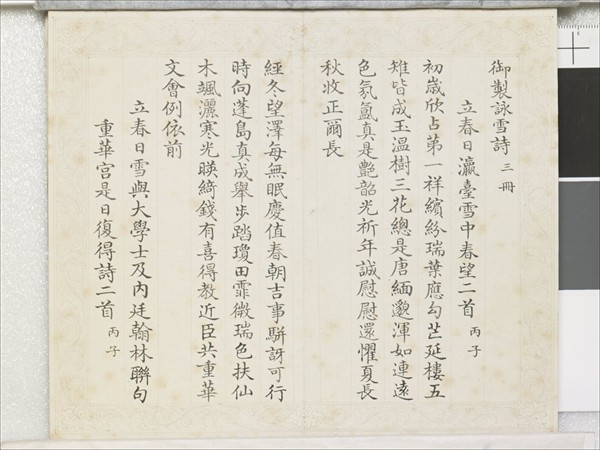 御製詠雪詩 三冊
立春日瀛臺雪中春望二首 丙子
初歲欣占第一祥繽紛瑞葉應勾芒延樓五
雉皆成玉溫樹三花總是唐緬邈渾如連遠
色氛氳真是艷韶光祈年誠慰慰還懼夏長
秋收正爾長
經冬望澤每無眠慶值春朝吉事駢訝可行
時向蓬島真成舉步踏瓊田霏微瑞色扶仙
木颯灑寒光暎綺錢有喜得教近臣共重華
文會例依前
立春日雪與大學士及內廷翰林聯句
重華宮是日復得詩二首 丙子